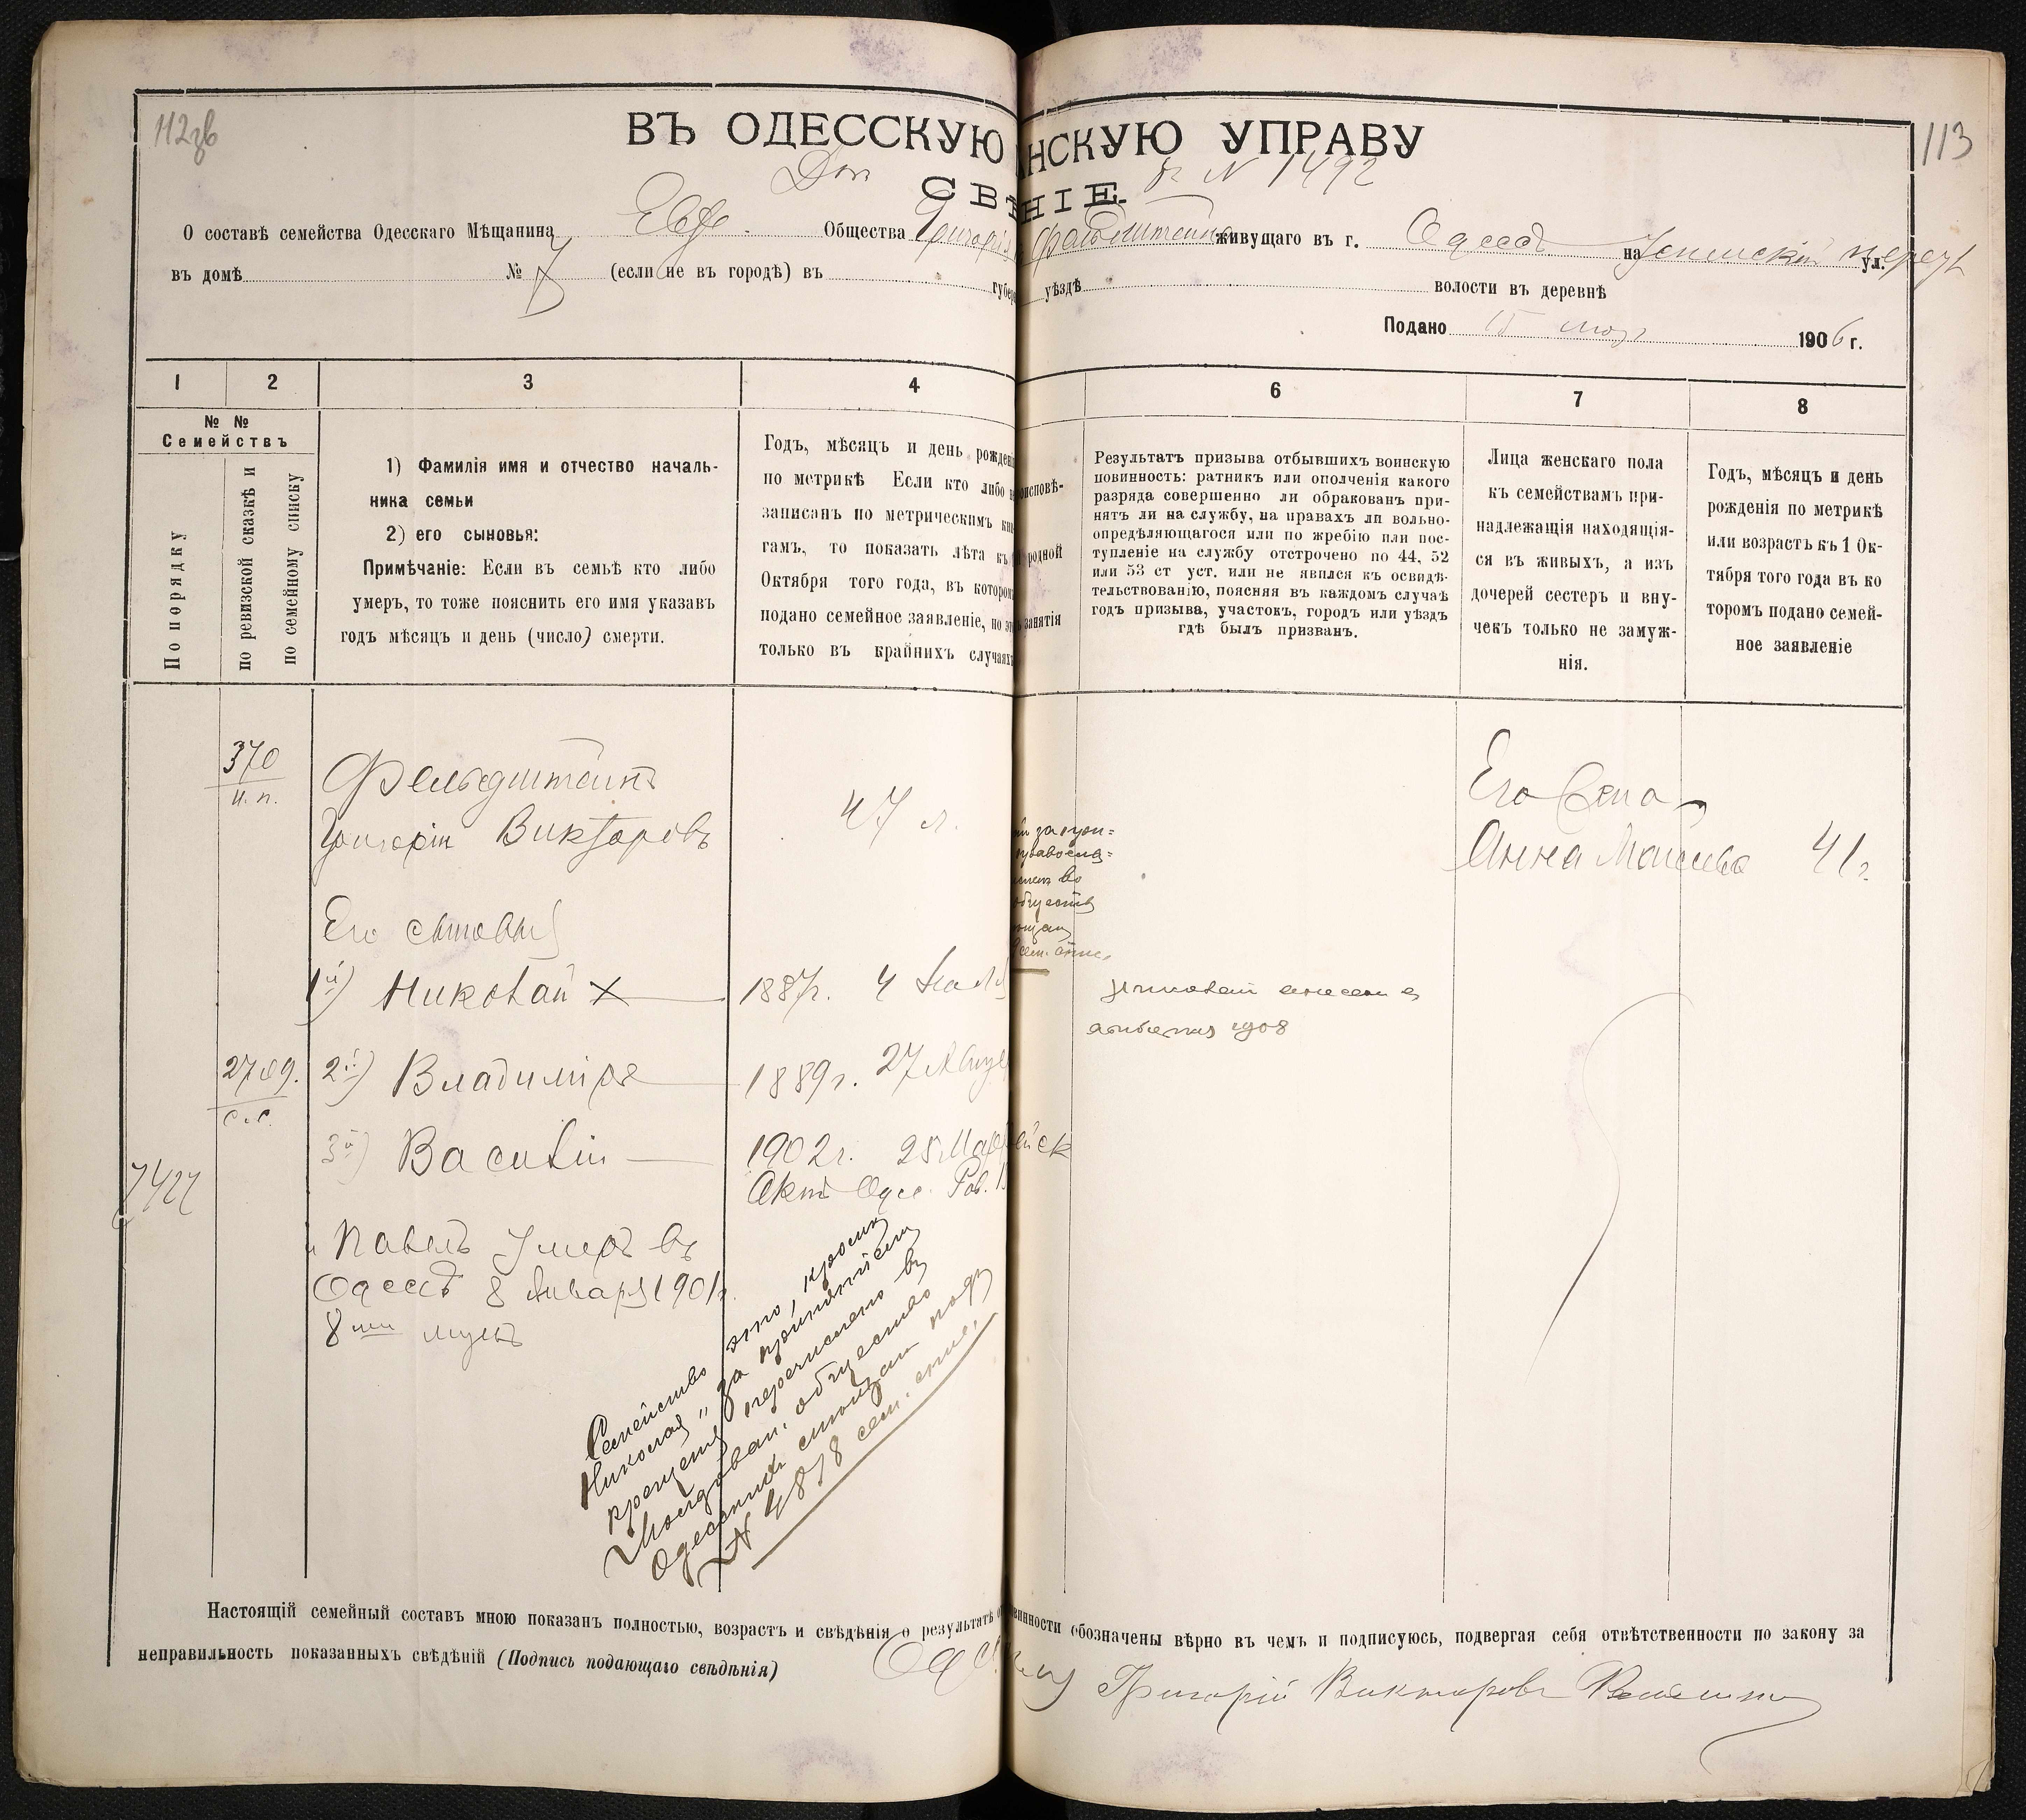 112об
113
ВЪ ОДЕССКУЮ НСКУЮ УПРАВУ
Доп к N 1492
СВѢ НІЕ.
О составѣ семейства Одесскаго Мѣщанина Евр. Общества Григорія Фельдштейна живущаго въ г. Одессѣ на Успенскій переул ул.
въ домѣ № 7 (если не въ городѣ) въ губер уѣздѣ волости въ деревнѣ
Подано 15 1906 г.
1 2 3 4 6 7 8
№ №
Семействъ
По порядку
по ревизской сказкѣ и
по семейному списку
1) Фамилія имя и отчество началь-
ника семьи
2) его сыновья:
Примѣчаніе: Если въ семьѣ кто либо
умеръ, то тоже пояснить его имя указавъ
годъ мѣсяцъ и день (число) смерти.
Годъ, мѣсяцъ и день рожден
по метрикѣ Если кто либо
записанъ по метрическимъ кни
гамъ, то показать лѣта къ
Октября того года, въ котором
подано семейное заявленіе, по
только въ крайнихъ случаях
оисповѣ-
родной
занятія
Результатъ призыва отбывшихъ воинскую
повинность: ратникъ или ополченія какого
разряда совершенно ли обракованъ при-
нятъ ли на службу, на правахъ ли вольно-
опредѣляющагося или по жребію или пос-
тупленіе на службу отстрочено по 44, 52
или 53 ст уст. или не явился къ освидѣ-
тельствованію, поясняя въ каждомъ случаѣ
годъ призыва, участокъ, городъ или уѣздъ
гдѣ былъ призванъ.
Лица женскаго пола
къ семействамъ при-
надлежащія находящія-
ся въ живыхъ, а изъ
дочерей сестеръ и вну-
чекъ только не замуж-
нія.
Годъ, мѣсяцъ и день
рожденія по метрикѣ
или возрастъ къ 1 Ок-
тября того года въ ко
торомъ подано семей-
ное заявленіе
370
н. п.
Фельдштейнъ
Григорій Викторовъ
47 л.
Его Жена
Анна Моисеева 41 г.
Его сыновья
1й) Николай X 1887г. 4
1908
2709.
с. с.
2й) Владиміръ 1889г. 27
3й) Василій 1902г. 25
Актъ Одес. Рав.
7422
Павелъ умеръ въ
Одессѣ 8 Января 1901г.
8ми
Семейство это, кромѣ
Николая, за принятіемъ
крещенія перечислено въ
Молдован. общество
Одесскихъ мѣщан подъ
N 4818 сем. спис.
Настоящій семейный составъ мною показанъ полностью, возрастъ и свѣдѣнія о результатѣ о винности обозначены вѣрно въ чемъ и подписуюсь, подвергая себя отвѣтственности по закону за
неправильность показанныхъ свѣдѣній (Подпись подающаго свѣдѣнія)
Григорій Викторовъ